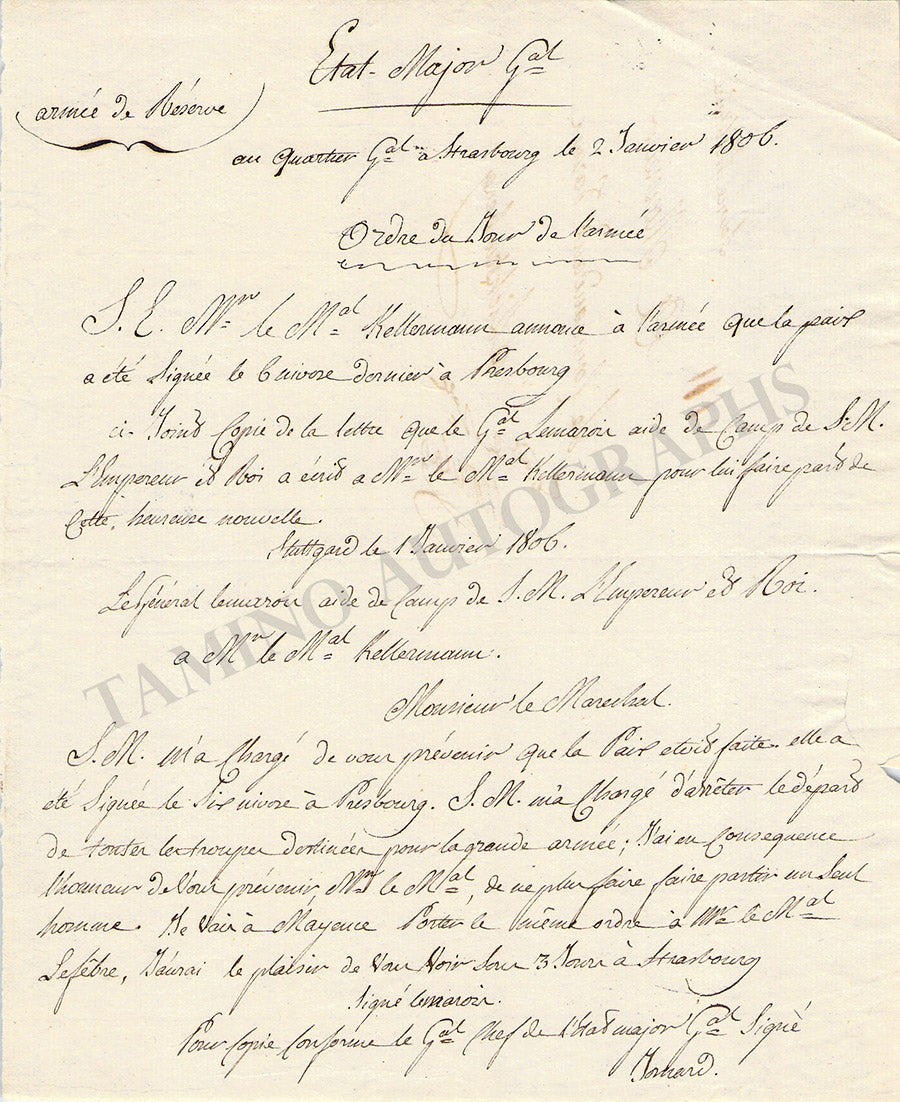 Etat-Major Gal
armée de Réserve
au quartier Gal à Strasbourg le 2 Janvier 1806.
Ordre du Jour de l'armée
S. E. Mr le Mal Kellermann annonce à l'armée que la paix
a été Signée le 6 nivose dernier à Presbourg
ci-Joint Copie de la lettre que le Gal Lemarois aide de Camp de S. M.
L'Empereur et Roi a écrit a Mr le Mal Kellermann pour lui faire part de
Cette heureuse nouvelle.
Stuttgard le 1 Janvier 1806.
Le Général lemarois aide de Camp de S. M. L'Empereur et Roi.
a Mr le Mal Kellermann.
Monsieur le Marechal.
S. M. m'a Chargé de vous prévenir que la Paix etoit faite. elle a
été Signée le Six nivose à Presbourg. S. M. m'a Chargé d'arrêter le départ
de toutes les troupes destinées pour la grande armée; J'ai en Consequence
l'honneur de Vous prévenir Mr le Mal, de ne plus faire faire partir un Seul
homme. Je Vais à Mayence Porter le même ordre à Mr le Mal
Lefêbre, J'aurai le plaisir de Vous Voir Sous 3 Jours à Strasbourg
Signé lemarois.
Pour Copie Conforme le Gal Chef de l'Etat major Gal Signé
TAMINO AUTOGRAPHS